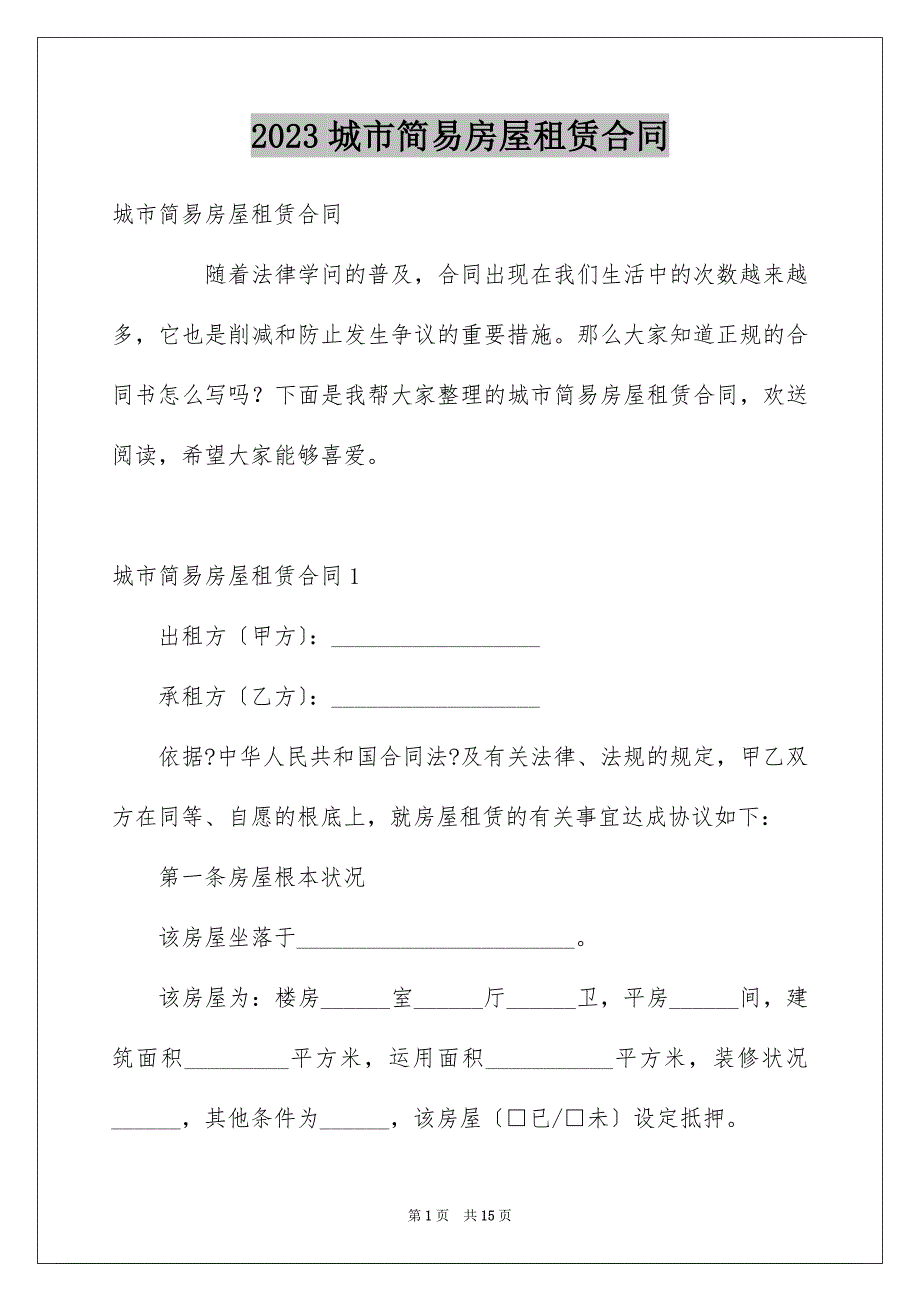 2023城市简易房屋租赁合同
城市简易房屋租赁合同
随着法律学问的普及，合同出现在我们生活中的次数越来越
多，它也是削减和防止发生争议的重要措施。那么大家知道正规的合
同书怎么写吗？下面是我帮大家整理的城市简易房屋租赁合同，欢送
阅读，希望大家能够喜爱。
城市简易房屋租赁合同1
出租方〔甲方〕：__________________
承租方〔乙方〕：__________________
依据?中华人民共和国合同法?及有关法律、法规的规定，甲乙双
方在同等、自愿的根底上，就房屋租赁的有关事宜达成协议如下：
第一条房屋根本状况
该房屋坐落于________________________。
该房屋为：楼房______室______厅______卫，平房______间，建
筑面积_________平方米，运用面积___________平方米，装修状况
______，其他条件为______，该房屋〔□已/□未〕设定抵押。
第1页 共15页